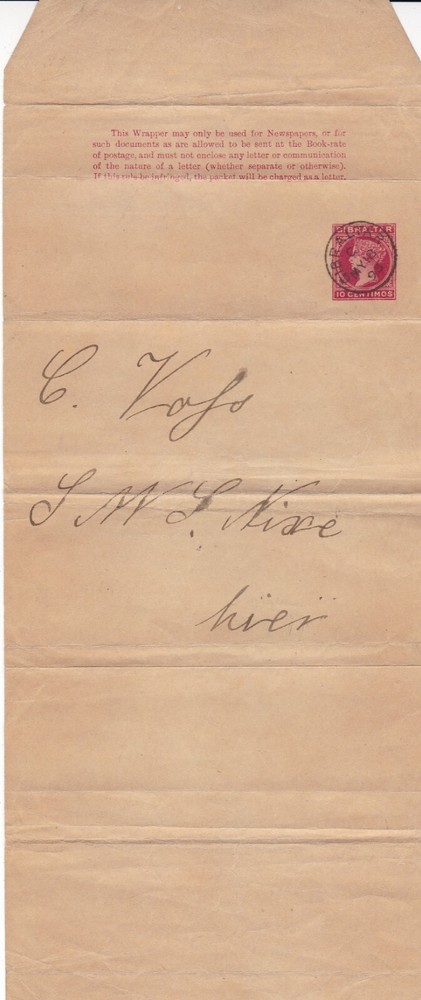 This Wrapper may only be used for Newspapers, or for
such documents as are allowed to be sent at the Book-rate
of postage, and must not enclose any letter or communication
of the nature of a letter (whether separate or otherwise).
If this rule be infringed, the packet will be charged as a letter.
GIBRALTAR
MY 10
10 CENTIMOS
C. Voſs
S. M. S. Nixe
hier